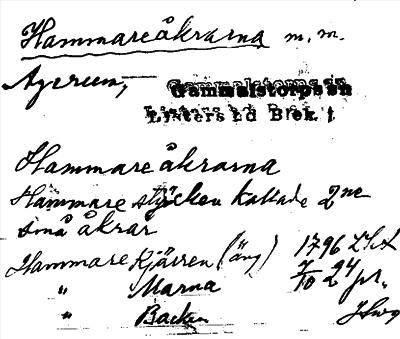 Hammareåkrarna m.m.
Agerum,
Gammalstorps sn
Listers hd Blek. l.
Hammareåkrarna
Hammare stycken kallade 2ne
små åkrar
Hammare Kjärren (äng) 1796
" Marna 7/10 24
" Backen